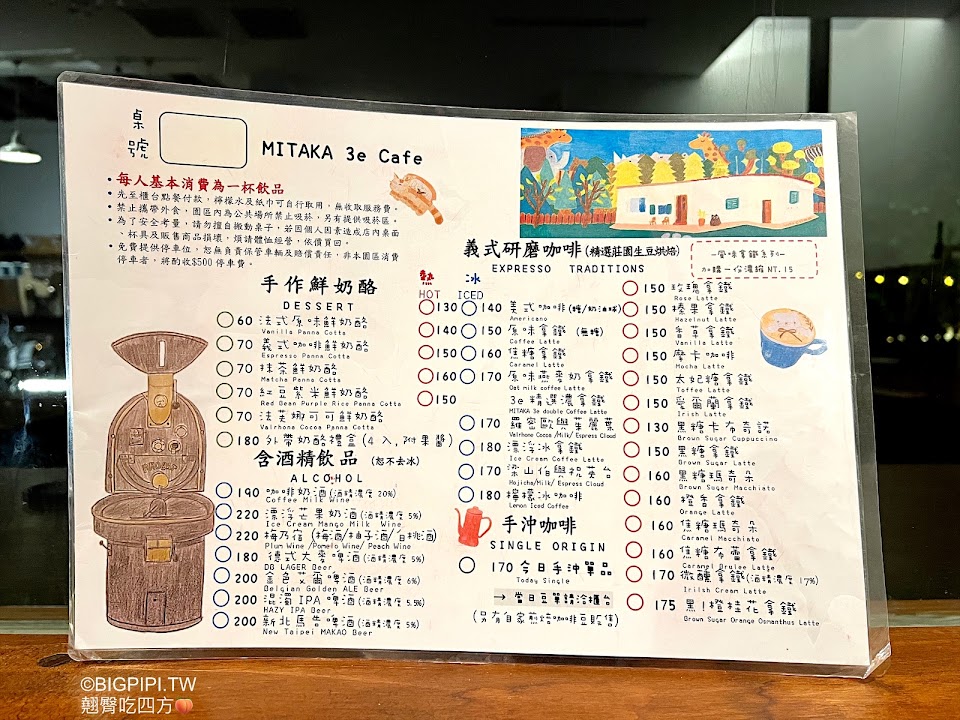 桌號
MITAKA 3e Cafe
每人基本消費為一杯飲品
先至櫃台點餐付款，檸檬水及紙巾可自行取用，無收取服務費。
禁止攜帶外食，園區內為公共場所禁止吸菸，另有提供吸菸區。
為了安全考量，請勿擅自搬動桌子，若因個人因素造成店內桌面
、杯具及販售商品損壞，煩請體恤經營，依價買回。
免費提供停車位，恕無負責保管車輛及賠償責任，非本園區消費
停車者，將酌收$500停車費。
手作鮮奶酪
DESSERT
60 法式原味鮮奶酪
Vanilla Panna Cotta
70 義式咖啡鮮奶酪
Espresso Panna Cotta
70 抹茶鮮奶酪
Matcha Panna Cotta
70 紅豆紫米鮮奶酪
Red Bean Purple Rice Panna Cotta
70 法芙娜可可鮮奶酪
Valrhona Cocoa Panna Cotta
180 外帶奶酪禮盒(4入,附果醬)
含酒精飲品 (恕不去冰)
ALCOHOL
190 咖啡奶酒(酒精濃度 20%)
Coffee Milk Wine
220 漂浮芒果奶酒(酒精濃度 5%)
Ice Cream Mango Milk Wine
220 梅乃宿 (梅酒/柚子酒/白桃酒)
Plum Wine /Pomelo Wine/ Peach Wine
180 德式大麥啤酒(酒精濃度 5%)
DB LAGER Beer
200 金色艾爾啤酒(酒精濃度 6%)
Belgian Golden ALE Beer
200 混濁IPA啤酒(酒精濃度 5.5%)
HAZY IPA Beer
200 新北馬告啤酒(酒精濃度 5%)
New Taipei MAKAO Beer
義式研磨咖啡(精選莊園生豆烘焙)
EXPRESSO TRADITIONS
熱 冰
HOT ICED
130 140 美式咖啡(糖/奶油球)
Americano
140 150 原味拿鐵 (無糖)
Coffee Latte
150 160 焦糖拿鐵
Caramel Latte
160 170 原味燕麥奶拿鐵
Oat milk coffee Latte
150 3e精選濃拿鐵
MITAKA 3e double Coffee Latte
170 羅密歐與茱麗葉
Valrhona Cocoa /Milk/ Espress Cloud
180 漂浮冰拿鐵
Ice Cream Coffee Latte
170 梁山伯與祝英台
Hojicha/Milk/ Espress Cloud
180 檸檬冰咖啡
Lemon Iced Coffee
手沖咖啡
SINGLE ORIGIN
170 今日手沖單品
Today Single
→ 當日豆單請洽櫃台
(另有自家煎焙咖啡豆販售)
—風味拿鐵系列—
加購一份濃縮 NT.15
150 玫瑰拿鐵
Rose Latte
150 榛果拿鐵
Hazelnut Latte
150 香草拿鐵
Vanilla Latte
150 摩卡咖啡
Mocha Latte
150 太妃糖拿鐵
Toffee Latte
150 愛爾蘭拿鐵
Irish Latte
130 黑糖卡布奇諾
Brown Sugar Cuppuccino
150 黑糖拿鐵
Brown Sugar Latte
160 黑糖瑪奇朵
Brown Sugar Macchiato
160 橙香拿鐵
Orange Latte
160 焦糖瑪奇朵
Caramel Macchiato
160 焦糖布蕾拿鐵
Caramel Brulee Latte
170 微醺拿鐵(酒精濃度 17%)
Irilish Cream Latte
175 黑!橙桂花拿鐵
Brown Sugar Orange Osmanthus Latte
©BIGPIPI.TW
翹臀吃四方